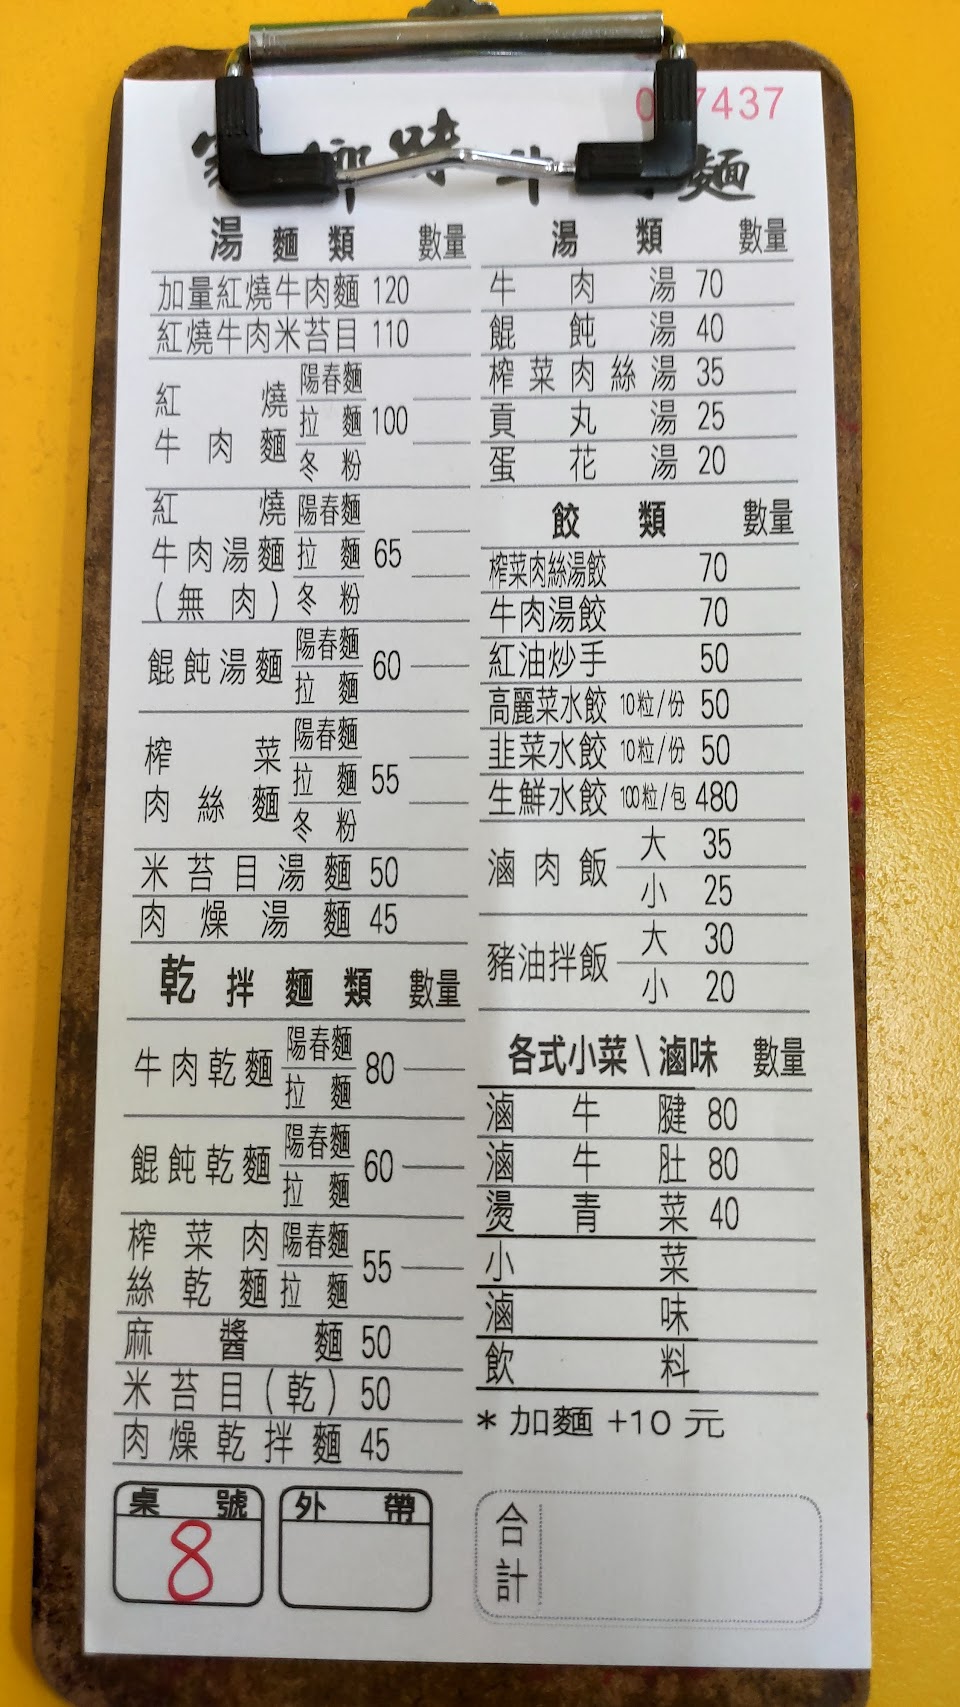 7437
鄉味牛 麵
湯麵類 數量
加量紅燒牛肉麵 120
紅燒牛肉米苔目 110
紅燒牛肉麵 陽春麵 拉麵 冬粉 100
紅燒牛肉湯麵(無肉) 陽春麵 拉麵 冬粉 65
餛飩湯麵 陽春麵 拉麵 60
榨菜肉絲麵 陽春麵 拉麵 冬粉 55
米苔目湯麵 50
肉燥湯麵 45
乾拌麵類 數量
牛肉乾麵 陽春麵 拉麵 80
餛飩乾麵 陽春麵 拉麵 60
榨菜肉絲乾麵 陽春麵 拉麵 55
麻醬麵 50
米苔目(乾) 50
肉燥乾拌麵 45
桌號 8
外帶
湯類 數量
牛肉湯 70
餛飩湯 40
榨菜肉絲湯 35
貢丸湯 25
蛋花湯 20
餃類 數量
榨菜肉絲湯餃 70
牛肉湯餃 70
紅油炒手 50
高麗菜水餃 10粒/份 50
韭菜水餃 10粒/份 50
生鮮水餃 100粒/包 480
滷肉飯 大 35
小 25
豬油拌飯 大 30
小 20
各式小菜\滷味 數量
滷牛腱 80
滷牛肚 80
燙青菜 40
小菜
滷味
飲料
*加麵 +10 元
合計